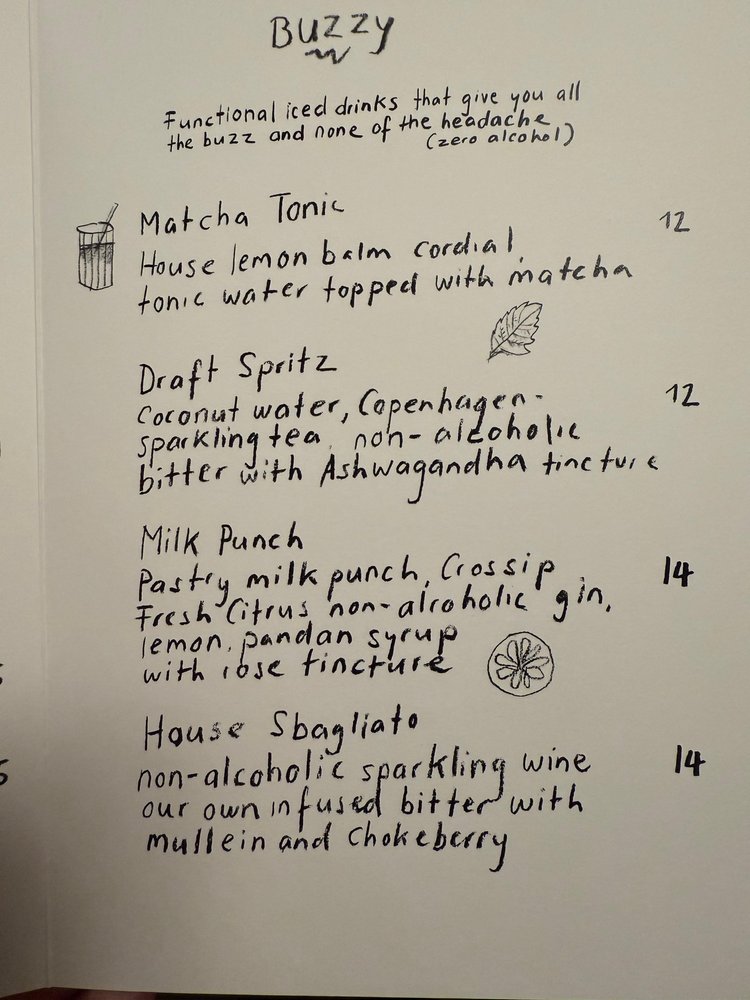 BUZZY
Functional iced drinks that give you all
the buzz and none of the headache
(zero alcohol)
Matcha Tonic 12
House lemon balm cordial,
tonic water topped with matcha
Draft Spritz
coconut water, Copenhagen- 12
sparkling tea, non-alcoholic
bitter with Ashwagandha tincture
Milk Punch
Pastry milk punch, Crossip 14
Fresh Citrus non-alcoholic gin,
lemon, pandan syrup
with rose tincture
House Sbagliato
non-alcoholic sparkling wine 14
our own infused bitter with
mullein and Chokeberry